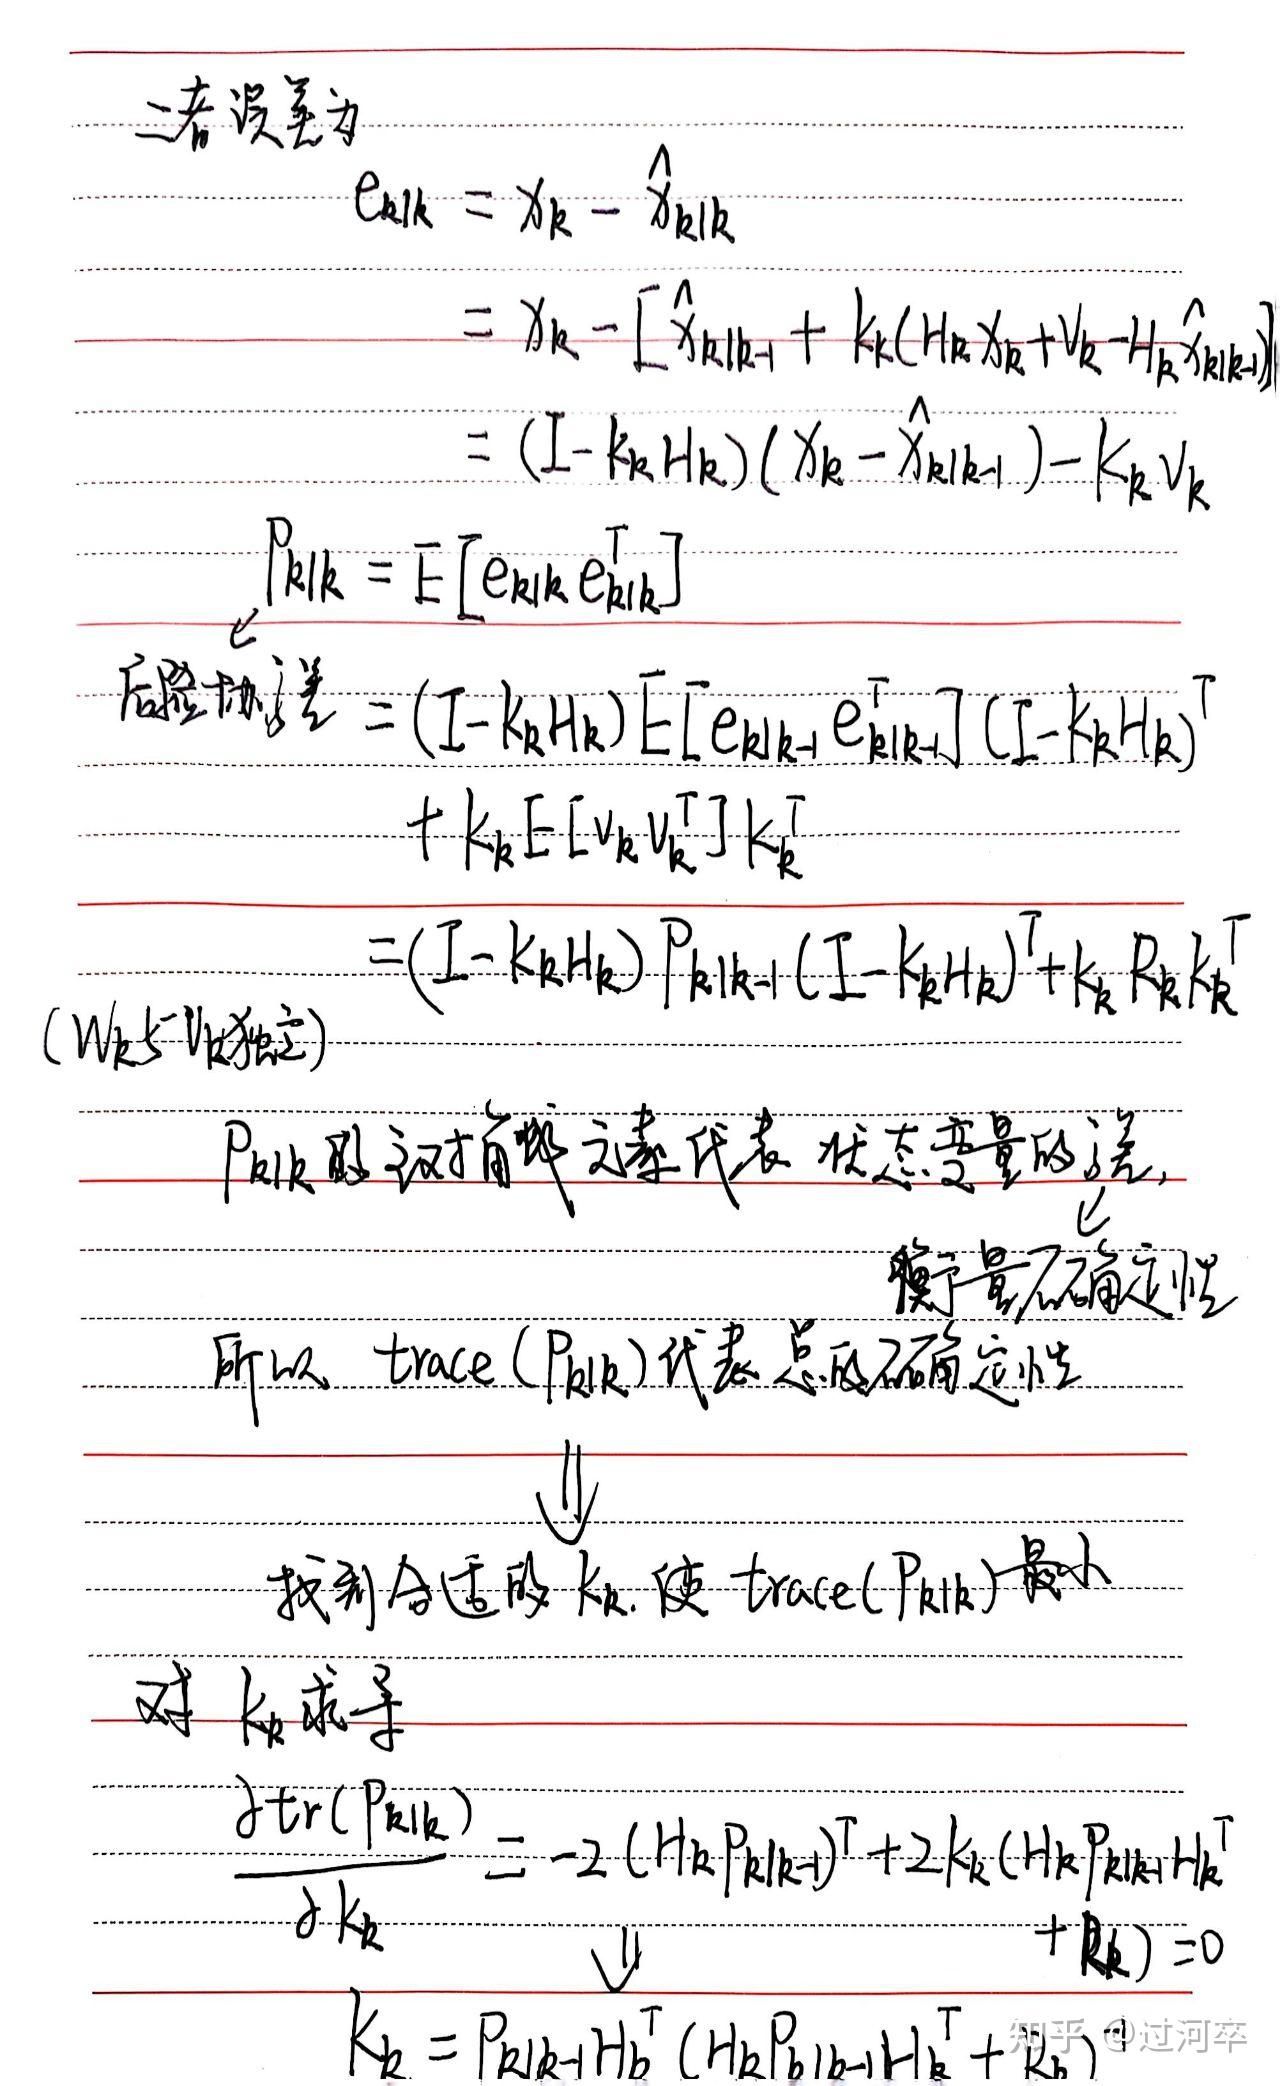 二者误差为
e_{k|k} = x_k - \hat{x}_{k|k}
= x_k - [\hat{x}_{k|k-1} + K_k(H_k x_k + V_k - H_k \hat{x}_{k|k-1})]
= (I - K_k H_k)(x_k - \hat{x}_{k|k-1}) - K_k V_k
P_{k|k} = E[e_{k|k} e_{k|k}^T]
↙
后验协方差 = (I - K_k H_k) E[e_{k|k-1} e_{k|k-1}^T] (I - K_k H_k)^T
+ K_k E[V_k V_k^T] K_k^T
= (I - K_k H_k) P_{k|k-1} (I - K_k H_k)^T + K_k R_k K_k^T
(W_k与V_k独立)
P_{k|k} 的对角元素代表 状态变量的方差,
↙
衡量不确定性
所以 trace(P_{k|k}) 代表总的不确定性
⇓
找到合适的 K_k. 使 trace(P_{k|k}) 最小
对 K_k 求导
∂tr(P_{k|k}) / ∂K_k = -2(H_k P_{k|k-1})^T + 2K_k(H_k P_{k|k-1} H_k^T
+ R_k) = 0
⇓
K_k = P_{k|k-1} H_k^T (H_k P_{k|k-1} H_k^T + R_k)^{-1}
知乎 @过河卒